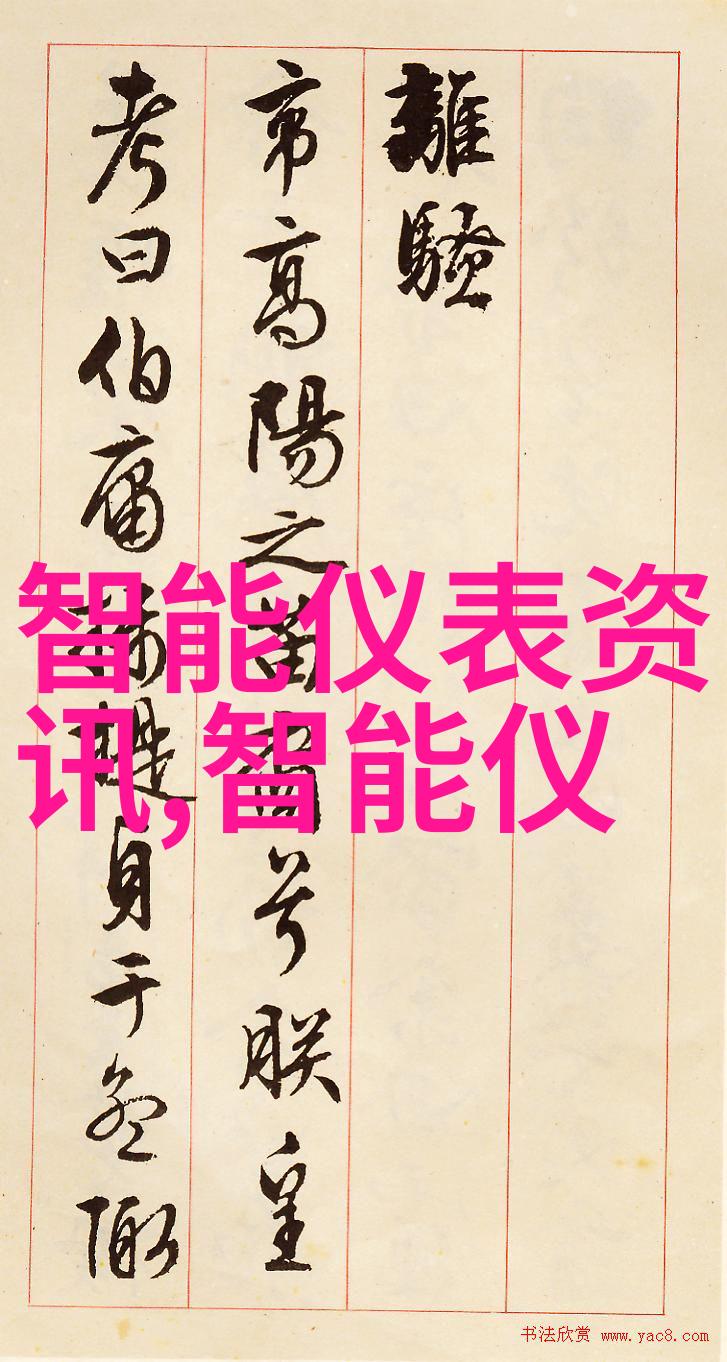 離騷
帝高陽之苗裔兮朕皇
考曰伯庸提貞于孟陬
智能仪表资
讯,智能仪
书法欣赏 www.yac8.com